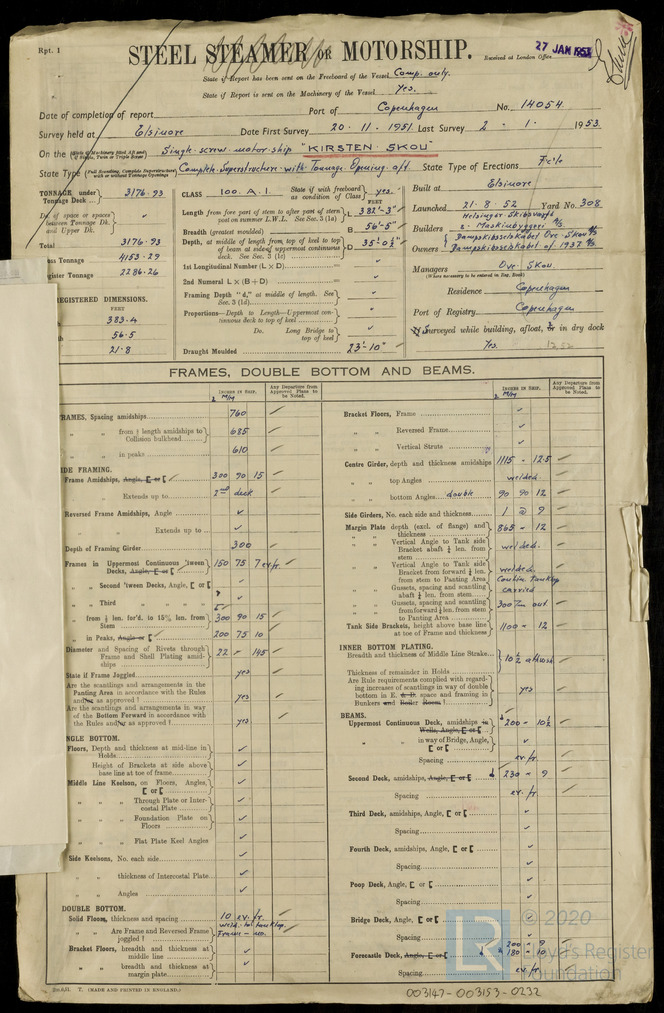 Rpt. 1
STEEL STEAMER OR MOTORSHIP.
Received at London Office 27 JAN 1953
State if Report has been sent on the Freeboard of the Vessel Comp. only.
State if Report is sent on the Machinery of the Vessel Yes.
Date of completion of report Port of Copenhagen No. 14054
Survey held at Elsinore Date First Survey 20.11.1951 Last Survey 2-1-1953
On the Single screw motor ship "KIRSTEN SKOU"
State Type Complete Superstructure with Tonnage Opening aft State Type of Erections Fc'le
TONNAGE under Tonnage Deck 3176.93
Do. of space or spaces between Tonnage Dk. and Upper Dk.
Total 3176.93
ss Tonnage 4153.29
gister Tonnage 2286.26
REGISTERED DIMENSIONS.
FEET
383.4
56.5
21.8
CLASS 100.A.1. State if with freeboard as condition of Class yes.
FEET
Length from fore part of stem to after part of stern post on summer L.W.L. See Sec. 3 (1a) L 382'-3"
Breadth (greatest moulded) B 56'-5"
Depth, at middle of length, from top of keel to top of beam at side of uppermost continuous deck. See Sec. 3 (1c) D 35'-0½"
1st Longitudinal Number (L × D)
2nd Numeral L × (B + D)
Framing Depth "d," at middle of length. See Sec. 3 (1d)
Proportions—Depth to Length—Uppermost continuous deck to top of keel
Do. Long Bridge to top of keel
Draught Moulded 23'-10"
Built at Elsinore
Launched 21.8.52 Yard No. 308
Builders Helsingør Skibsværft & Maskinbyggeri A/S
Owners Dampskibsselskabet Ove Skou A/S Dampskibsselskabet af 1937 A/S
Managers Ove Skou.
(Where necessary to be entered in Reg. Book)
Residence Copenhagen
Port of Registry Copenhagen
Surveyed while building, afloat, or in dry dock
Yes. 12.52
FRAMES, DOUBLE BOTTOM AND BEAMS.
INCHES IN SHIP. M/M Any Departure from Approved Plans to be Noted.
FRAMES, Spacing amidships 760
" " from ½ length amidships to Collision bulkhead 685
" " in peaks 610
SIDE FRAMING.
Frame Amidships, Angle, [ or [ 300 90 15
" " Extends up to 2nd deck
Reversed Frame Amidships, Angle
" " Extends up to
Depth of Framing Girder 300
Frames in Uppermost Continuous 'tween Decks, Angle, [ or [ 150 75 7 ev. fr.
" " Second 'tween Decks, Angle, [ or [
" " Third " " " "
" from ½ len. for'd. to 15% len. from Stem 300 90 15
" in Peaks, Angle or [ 200 75 10
Diameter and Spacing of Rivets through Frame and Shell Plating amidships 22 - 145
State if Frame Joggled yes
Are the scantlings and arrangements in the Panting Area in accordance with the Rules and/or as approved? yes
Are the scantlings and arrangements in way of the Bottom Forward in accordance with the Rules and/or as approved? yes
NGLE BOTTOM.
Floors, Depth and thickness at mid-line in Holds
Height of Brackets at side above base line at toe of frame
Middle Line Keelson, on Floors, Angles, [ or [
" " Through Plate or Intercostal Plate
" " Foundation Plate on Floors
" " Flat Plate Keel Angles
Side Keelsons, No. each side
" " thickness of Intercostal Plate
" " Angles
DOUBLE BOTTOM.
Solid Floors, thickness and spacing 10 ev. fr.
" " Are Frame and Reversed Frame joggled? weld. to tanktop. Frame - no.
Bracket Floors, breadth and thickness at middle line
" " breadth and thickness at margin plate
Rpt. 1. T. (MADE AND PRINTED IN ENGLAND.)
INCHES IN SHIP. M/M Any Departure from Approved Plans to be Noted.
Bracket Floors, Frame
" " Reversed Frame
" " Vertical Struts
Centre Girder, depth and thickness amidships 1115 - 12.5
" " top Angles welded
" " bottom Angles double 90 90 12
Side Girders, No. each side and thickness 1 @ 9
Margin Plate depth (excl. of flange) and thickness 865 - 12
" " Vertical Angle to Tank side Bracket abaft ¼ len. from stem welded.
" " Vertical Angle to Tank side Bracket from forward ¼ len. from stem to Panting Area welded.
" " Gussets, spacing and scantling abaft ¼ len. from stem Contin. tanktop carried
" " Gussets, spacing and scantling from forward ¼ len. from stem to Panting Area 300 mm out
Tank Side Brackets, height above base line at toe of Frame and thickness 1100 - 12
INNER BOTTOM PLATING.
Breadth and thickness of Middle Line Strake 10½ athwsh
Thickness of remainder in Holds
Are Rule requirements complied with regarding increases of scantlings in way of double bottom in E. & B. space and framing in Bunkers and Boiler Room? yes
BEAMS.
Uppermost Continuous Deck, amidships in Wells, Angle, [ or [ 200 - 10½
" " in way of Bridge, Angle, [ or [
Spacing ev. fr.
Second Deck, amidships, Angle, [ or [ 230 - 9
Spacing ev. fr.
Third Deck, amidships, Angle, [ or [
Spacing
Fourth Deck, amidships, Angle, [ or [
Spacing
Poop Deck, Angle, [ or [
Spacing
Bridge Deck, Angle, [ or [
Spacing
Forecastle Deck, Angle, [ or [ 200 - 9 180 - 10
Spacing ev. fr.
LR © 2020 Lloyd's Register Foundation
003147-003153-0232